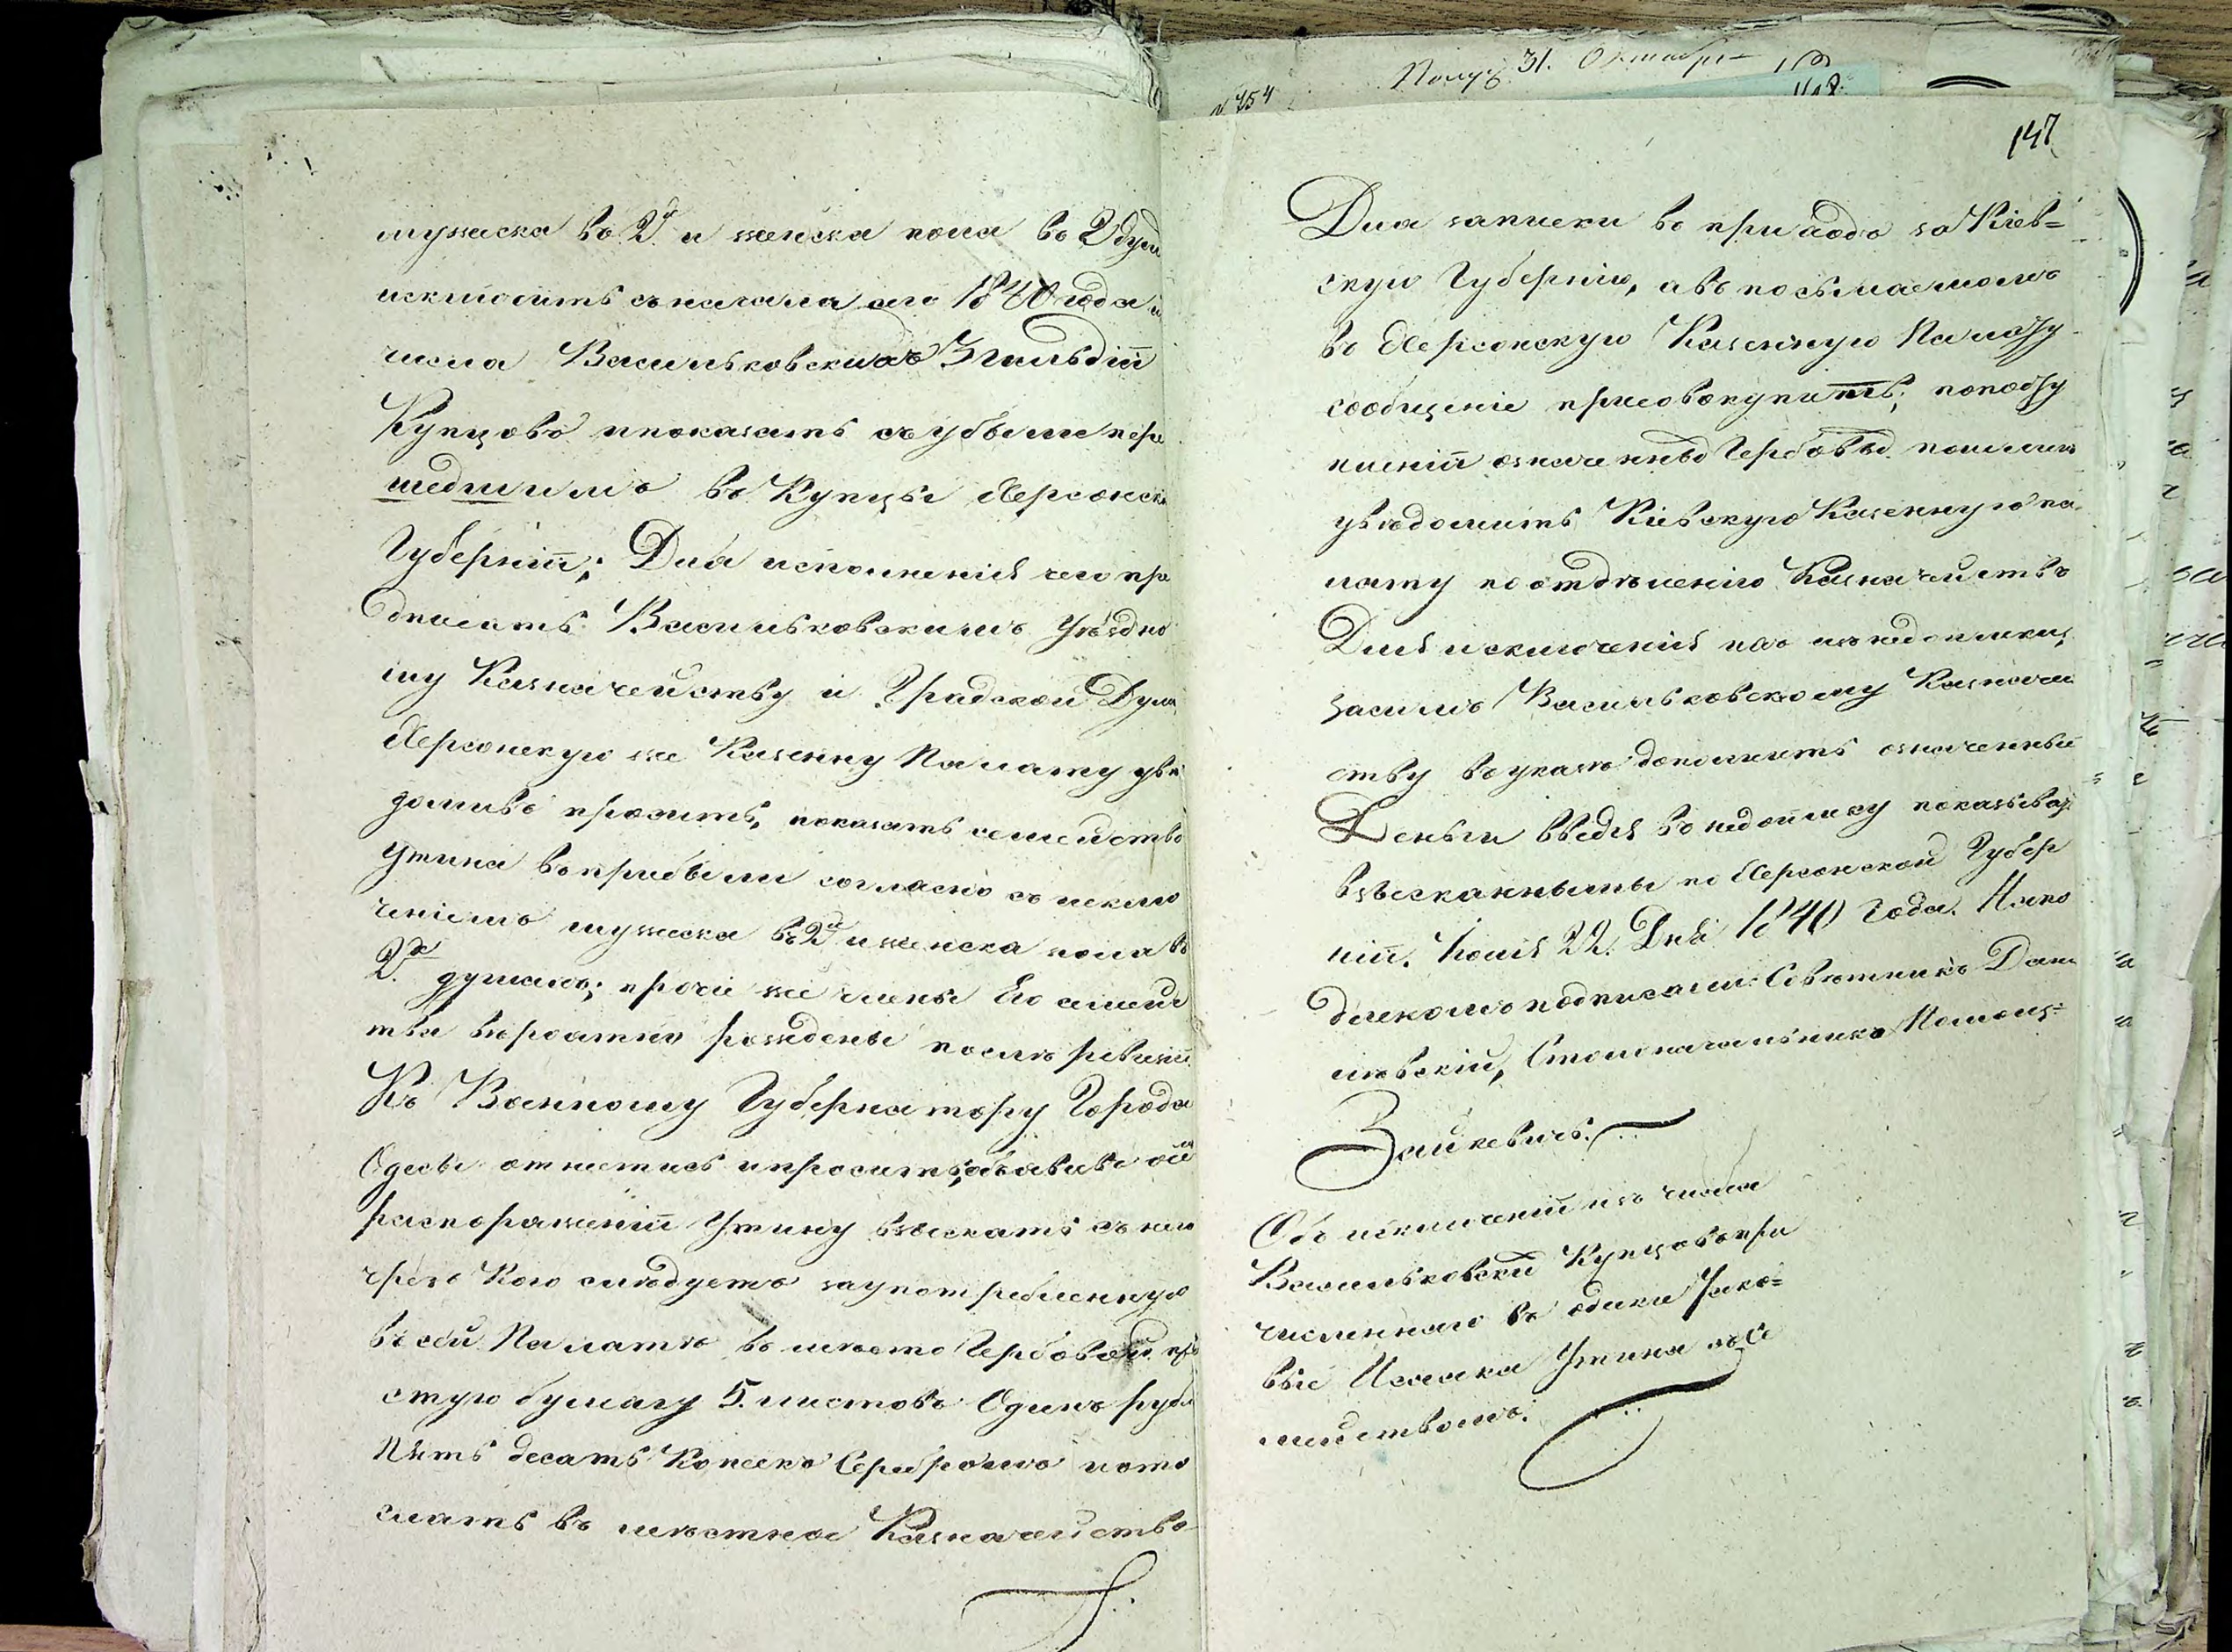 мужеска въ 2х и женска пола въ 2 душ
исключить съ начала сего 1840 года и
числа Васильковскихъ 3 гильдіи
Купцовъ и показать съ убыли пере
шедшимъ въ Купцы Херсонск
Губерніи; Для исполненія чего пре
дписать Васильковскимъ Уѣздно
му Казначейству и Градской Думѣ
Херсонскую же Казенну Палату увѣ
домивъ просить, показать семейство
Утина въ прибыли согласно съ исклю
ченіемъ мужеска въ 2х и женска пола въ
2х душахъ; прочіе же члены Его семейс
тва вѣроятно рождены послѣ ревизіи.
Къ Военному Губернатору Города
Одессы отнестись и просить, объявивъ ой
распоряженіи Утину взыскать съ него
чрезъ Кого слѣдуетъ за употребленную
въ сей Палатѣ въ мѣсто Гербовой про
стую бумагу 5. листовъ Одинъ рубл
Пять десятъ Копеекъ Серебромъ и ото
слать въ мѣстное Казначейство
№ 754
Получ. 31. Октября
147
Для записки въ приходъ за Кіев=
скую Губернію, а въ посылаемомъ
въ Херсонскую Казенную Палату
сообщеніе присовокупить; по
означенныхъ Гербовыхъ пошлинъ
увѣдомить Кіевскую Казенную Па
лату по отдѣленію Казначействъ
Для исключенія ихъ изъ недоимки,
засимъ Васильковскому Казначей
ству въ указѣ дополнить означенный
Деньги введя въ недоимку показыват
взысканными по Херсонской Губер
ніи. Іюля 22. Дня 1840 Года. На по
длинномъ подписали: Совѣтникъ Дани
левскій, Столоначальникъ Помощ=
Зайкевичъ.
Объ исключеніи изъ числа
Васильковскихъ Купцовъ при
численнаго въ одни Ого=
вые Исаака Утина съ Се
мействомъ.